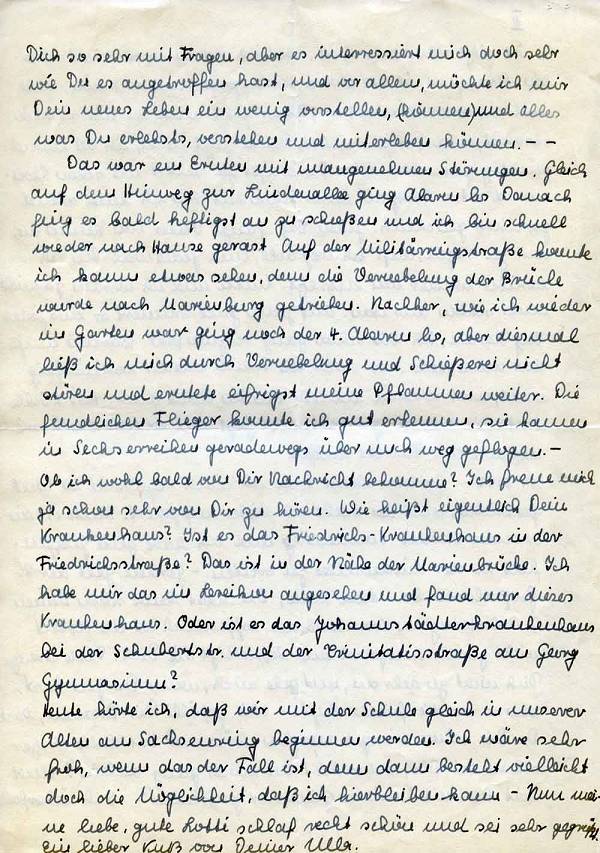 Dich so sehr mit Fragen, aber es interressiert mich doch sehr
wie Du es angetroffen hast, und vor allem, möchte ich mir
Dein neues Leben ein wenig vorstellen, (können) und alles
was Du erlebsts, verstehen und miterleben können. – –
Das war ein Ernten mit unangenehmen Störungen. Gleich
auf dem Hinweg zur Lindenallee ging Alarm los Danach
fing es bald heftigst an zu schießen und ich bin schnell
wieder nach Hause gerast. Auf der Militärringstraße konnte
ich kaum etwas sehen, denn die Vernebelung der Brücke
wurde nach Marienburg getrieben. Nachher, wie ich wieder
im Garten war ging noch der 4. Alarm los, aber diesmal
ließ ich mich durch Vernebelung und Schießerei nicht
stören und erntete eifrigst meine Pflaumen weiter. Die
feindlichen Flieger konnte ich gut erkennen, sie kamen
in Sechserreihen geradewegs über mich weg geflogen. –
Ob ich wohl bald von Dir Nachricht bekomme? Ich freue mich
ja schon sehr von Dir zu hören. Wie heißt eigentlich Dein
Krankenhaus? Ist es das Friedrichs-Krankenhaus in der
Friedrichsstraße? Das ist in der Nähe der Marienbrücke. Ich
habe mir das im Lexikon angesehen und fand nur dieses
Krankenhaus. Oder ist es das Johannstädterkrankenhaus
bei der Schubertstr. und der Trinitatisstraße am Georg
Gymnasium?
Heute hörte ich, daß wir mit der Schule gleich in unserer
Alten am Sachsenring beginnen werden. Ich wäre sehr
froh, wenn das der Fall ist, denn dann besteht vielleicht
doch die Möglichkeit, daß ich hierbleiben kann – Nun mei-
ne liebe, gute Lotti schlaf recht schön und sei sehr gegrüßt.
Ein lieber Kuß von Deiner Ulla.